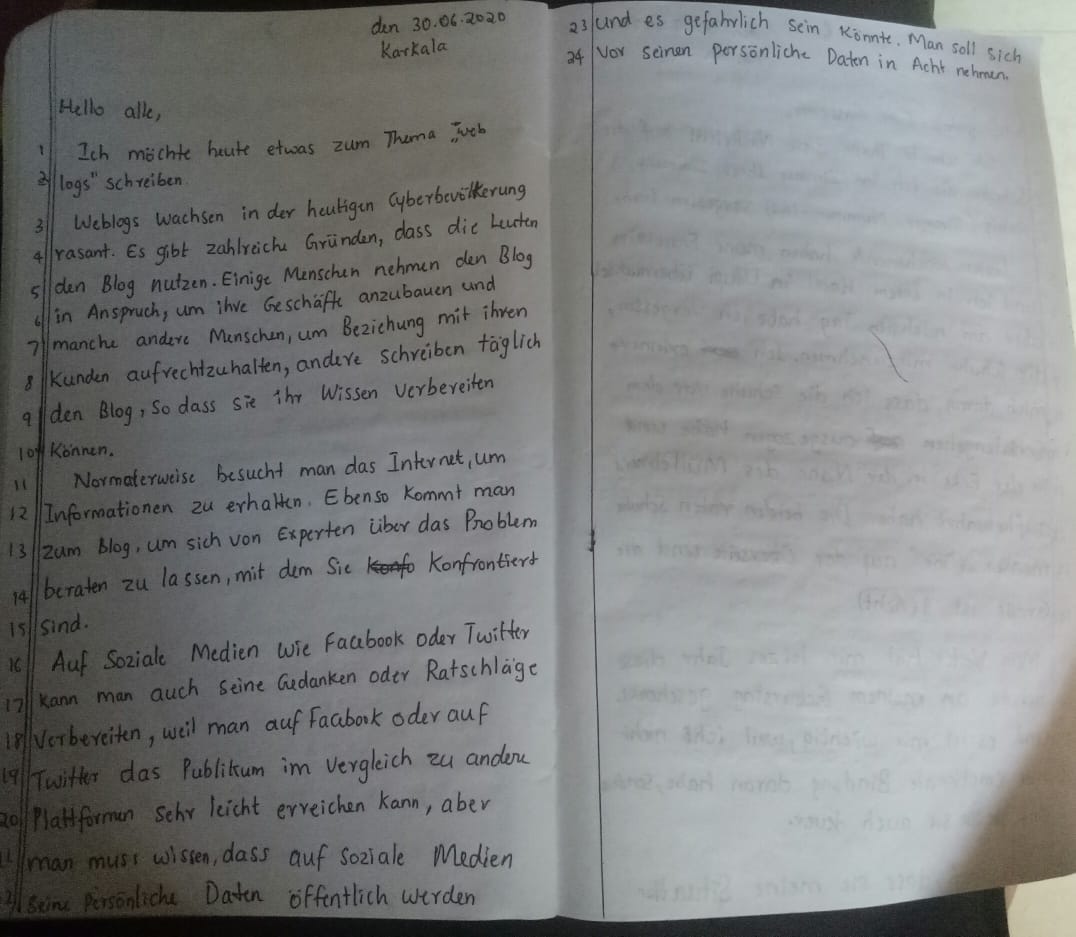 den 30.06.2020
Karkala
Hello alle,
1 Ich möchte heute etwas zum Thema „web
2 logs" schreiben.
3 Weblogs wachsen in der heutigen Cyberbevölkerung
4 rasant. Es gibt zahlreiche Gründen, dass die Leuten
5 den Blog nutzen. Einige Menschen nehmen den Blog
6 in Anspruch, um ihre Geschäfte anzubauen und
7 manche andere Menschen, um Beziehung mit ihren
8 Kunden aufrechtzuhalten, andere schreiben täglich
9 den Blog, So dass sie ihr Wissen verbereiten
10 Können.
11 Normalerweise besucht man das Internet, um
12 Informationen zu erhalten. Ebenso kommt man
13 zum Blog, um sich von Experten über das Problem
14 beraten zu lassen, mit dem Sie Konfo Konfrontiert
15 Sind.
16 Auf Soziale Medien wie Facebook oder Twitter
17 kann man auch seine Gedanken oder Ratschläge
18 Verbereiten, weil man auf Facbook oder auf
19 Twitter das Publikum im Vergleich zu andere
20 Plattformen sehr leicht erreichen kann, aber
man muss wissen, dass auf soziale Medien
seine Persönliche Daten öffentlich werden
23 und es gefahrlich sein könnte. Man soll sich
24 Vor seinen persönliche Daten in Acht nehmen.